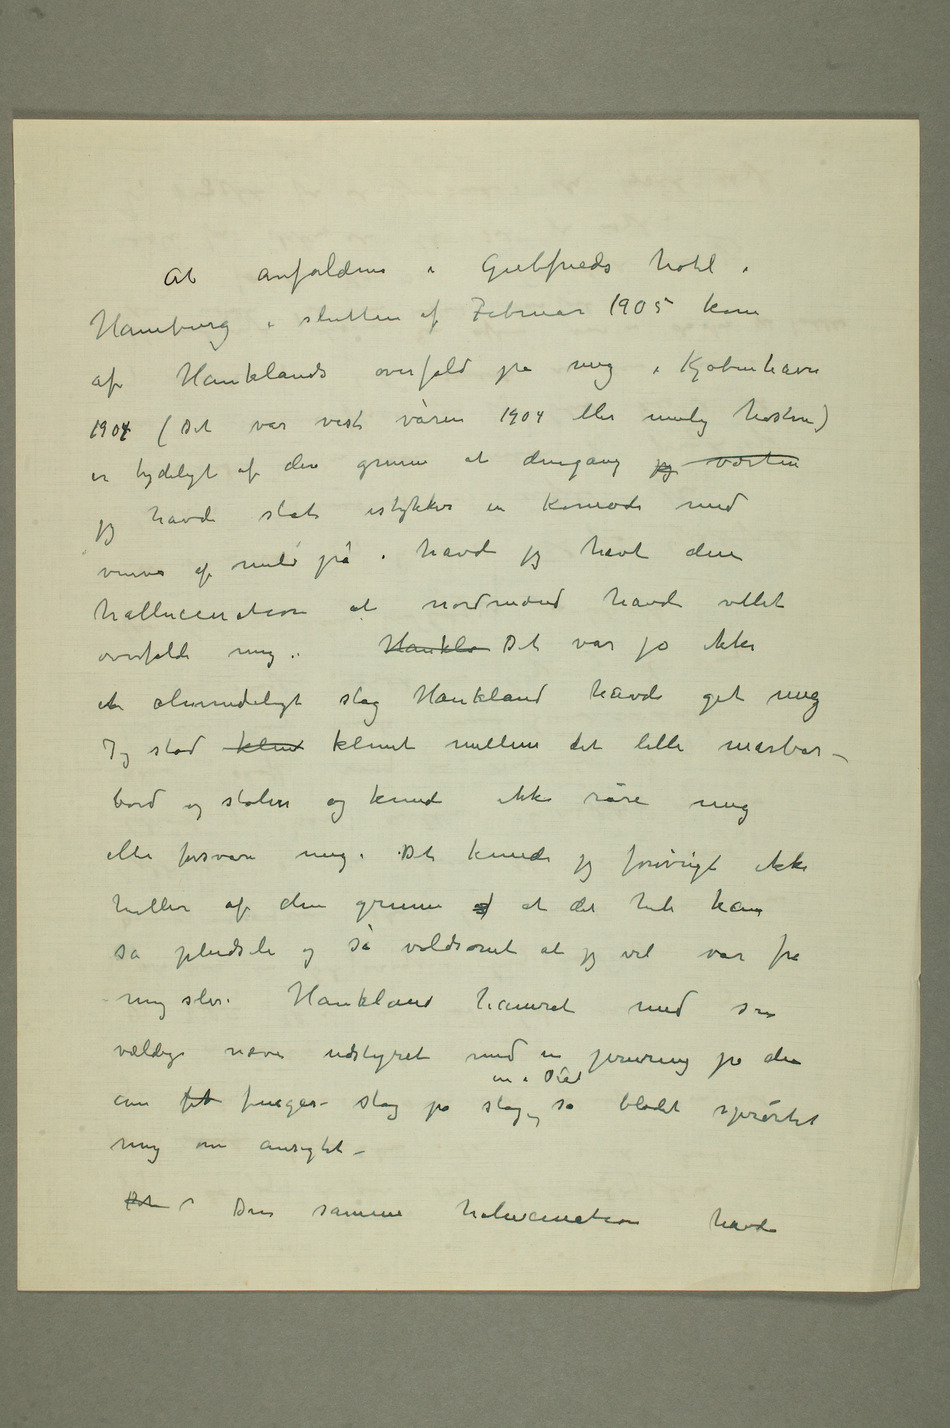 At anfaldene i Giebfrieds hotel i
Hamburg i slutten af Februar 1905 kom
af Hauklands overfald på mig i Kjøbenhavn
1904 (Det var vist våren 1904 eller mulig høsten)
er tydeligt af den grunn at dengang jeg værten
jeg havde slåt istykker en komode med
venus af milo på i havde jeg havt den
hallucination at nordmænd havde villet
overfalde mig. Haukla Det var jo ikke
et almindeligt slag Haukland havde get mig
Jeg stod klemt klemt mellem det lille marbor-
bord og stolen og kunde ikke røre mig
eller forsvare mig. Det kunde jeg forøvrigt ikke
heller af den grunn af at det hele kom
så pludseli og så voldsomt at jeg vel var fra
mig selv. Haukland hamret med sin
vældige næve udstyret med en jernring på den
ene fin finger – slag på slag, så blodet sprøitet
en i Død
mig om ansigtet –
Det Den samme halucination havde